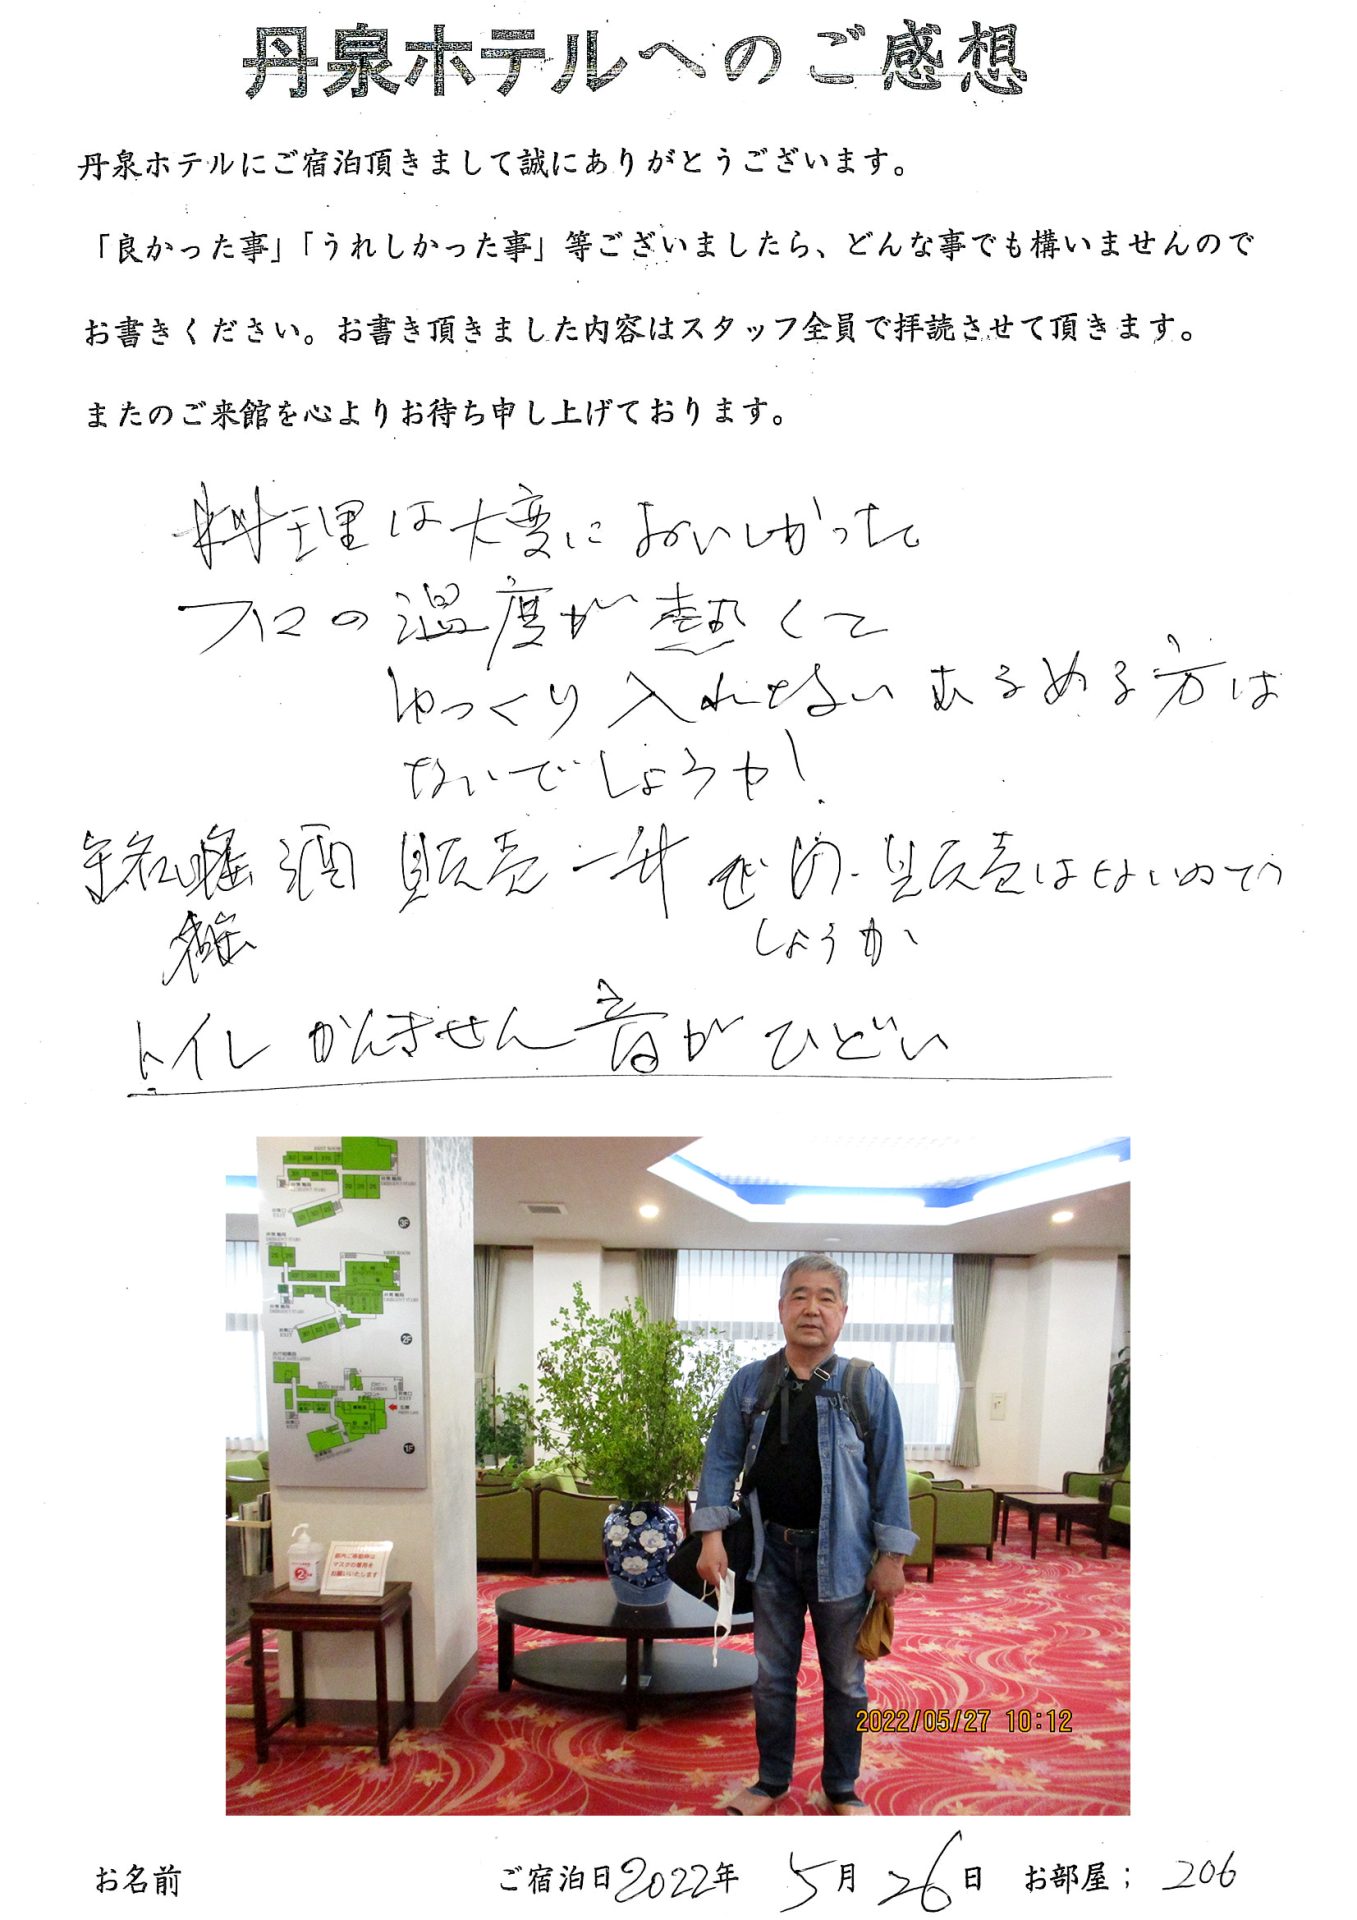 丹泉ホテルへのご感想
丹泉ホテルにご宿泊頂きまして誠にありがとうございます。
「良かった事」「うれしかった事」等ございましたら、どんな事でも構いませんので
お書きください。お書き頂きました内容はスタッフ全員で拝読させて頂きます。
またのご来館を心よりお待ち申し上げております。
料理は大変においしかった
フロの温度が熱くて
ゆっくり入れない
方は
ないでしょうか!
酒販売一升 販売はないのでう
しょうか
トイレかんきせん音がひどい
3F
2F
1F
館内ご移動時は
マスクの着用を
お願いいたします
2022/05/27 10:12
お名前 ご宿泊日2022年 5月 26日 お部屋; 206